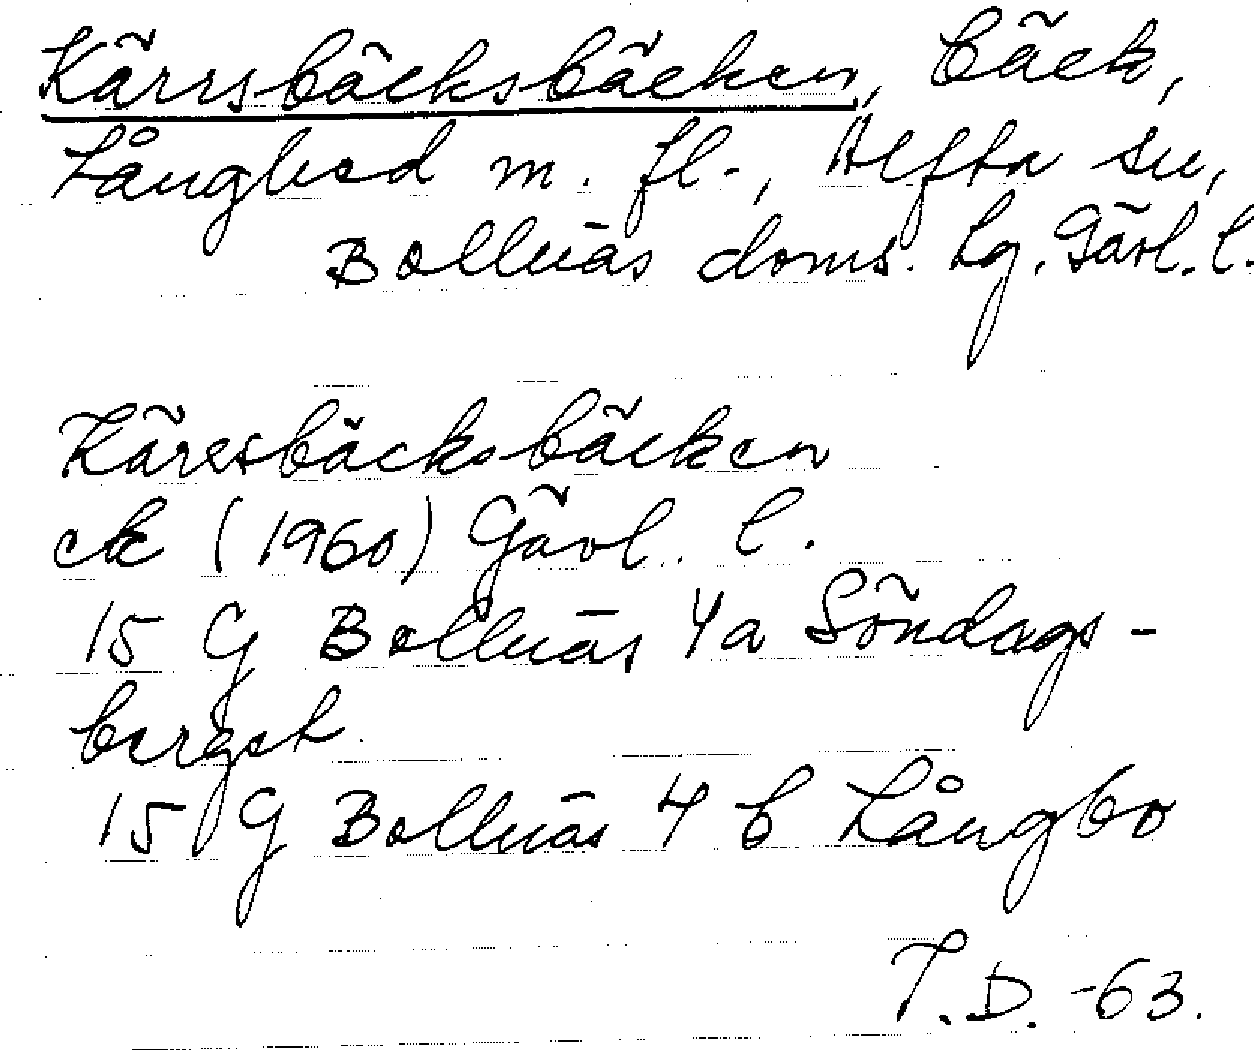 Kärrsbäcksbäcken, bäck,
Långhed m. fl., Alfta sn,
Bollnäs doms. hg. Gävl. l.
Kärrsbäcksbäcken
ek (1960) Gävl. l.
15 G Bollnäs 4a Söndags-
berget
15 G Bollnäs 4 b Långbo
T.D. -63.